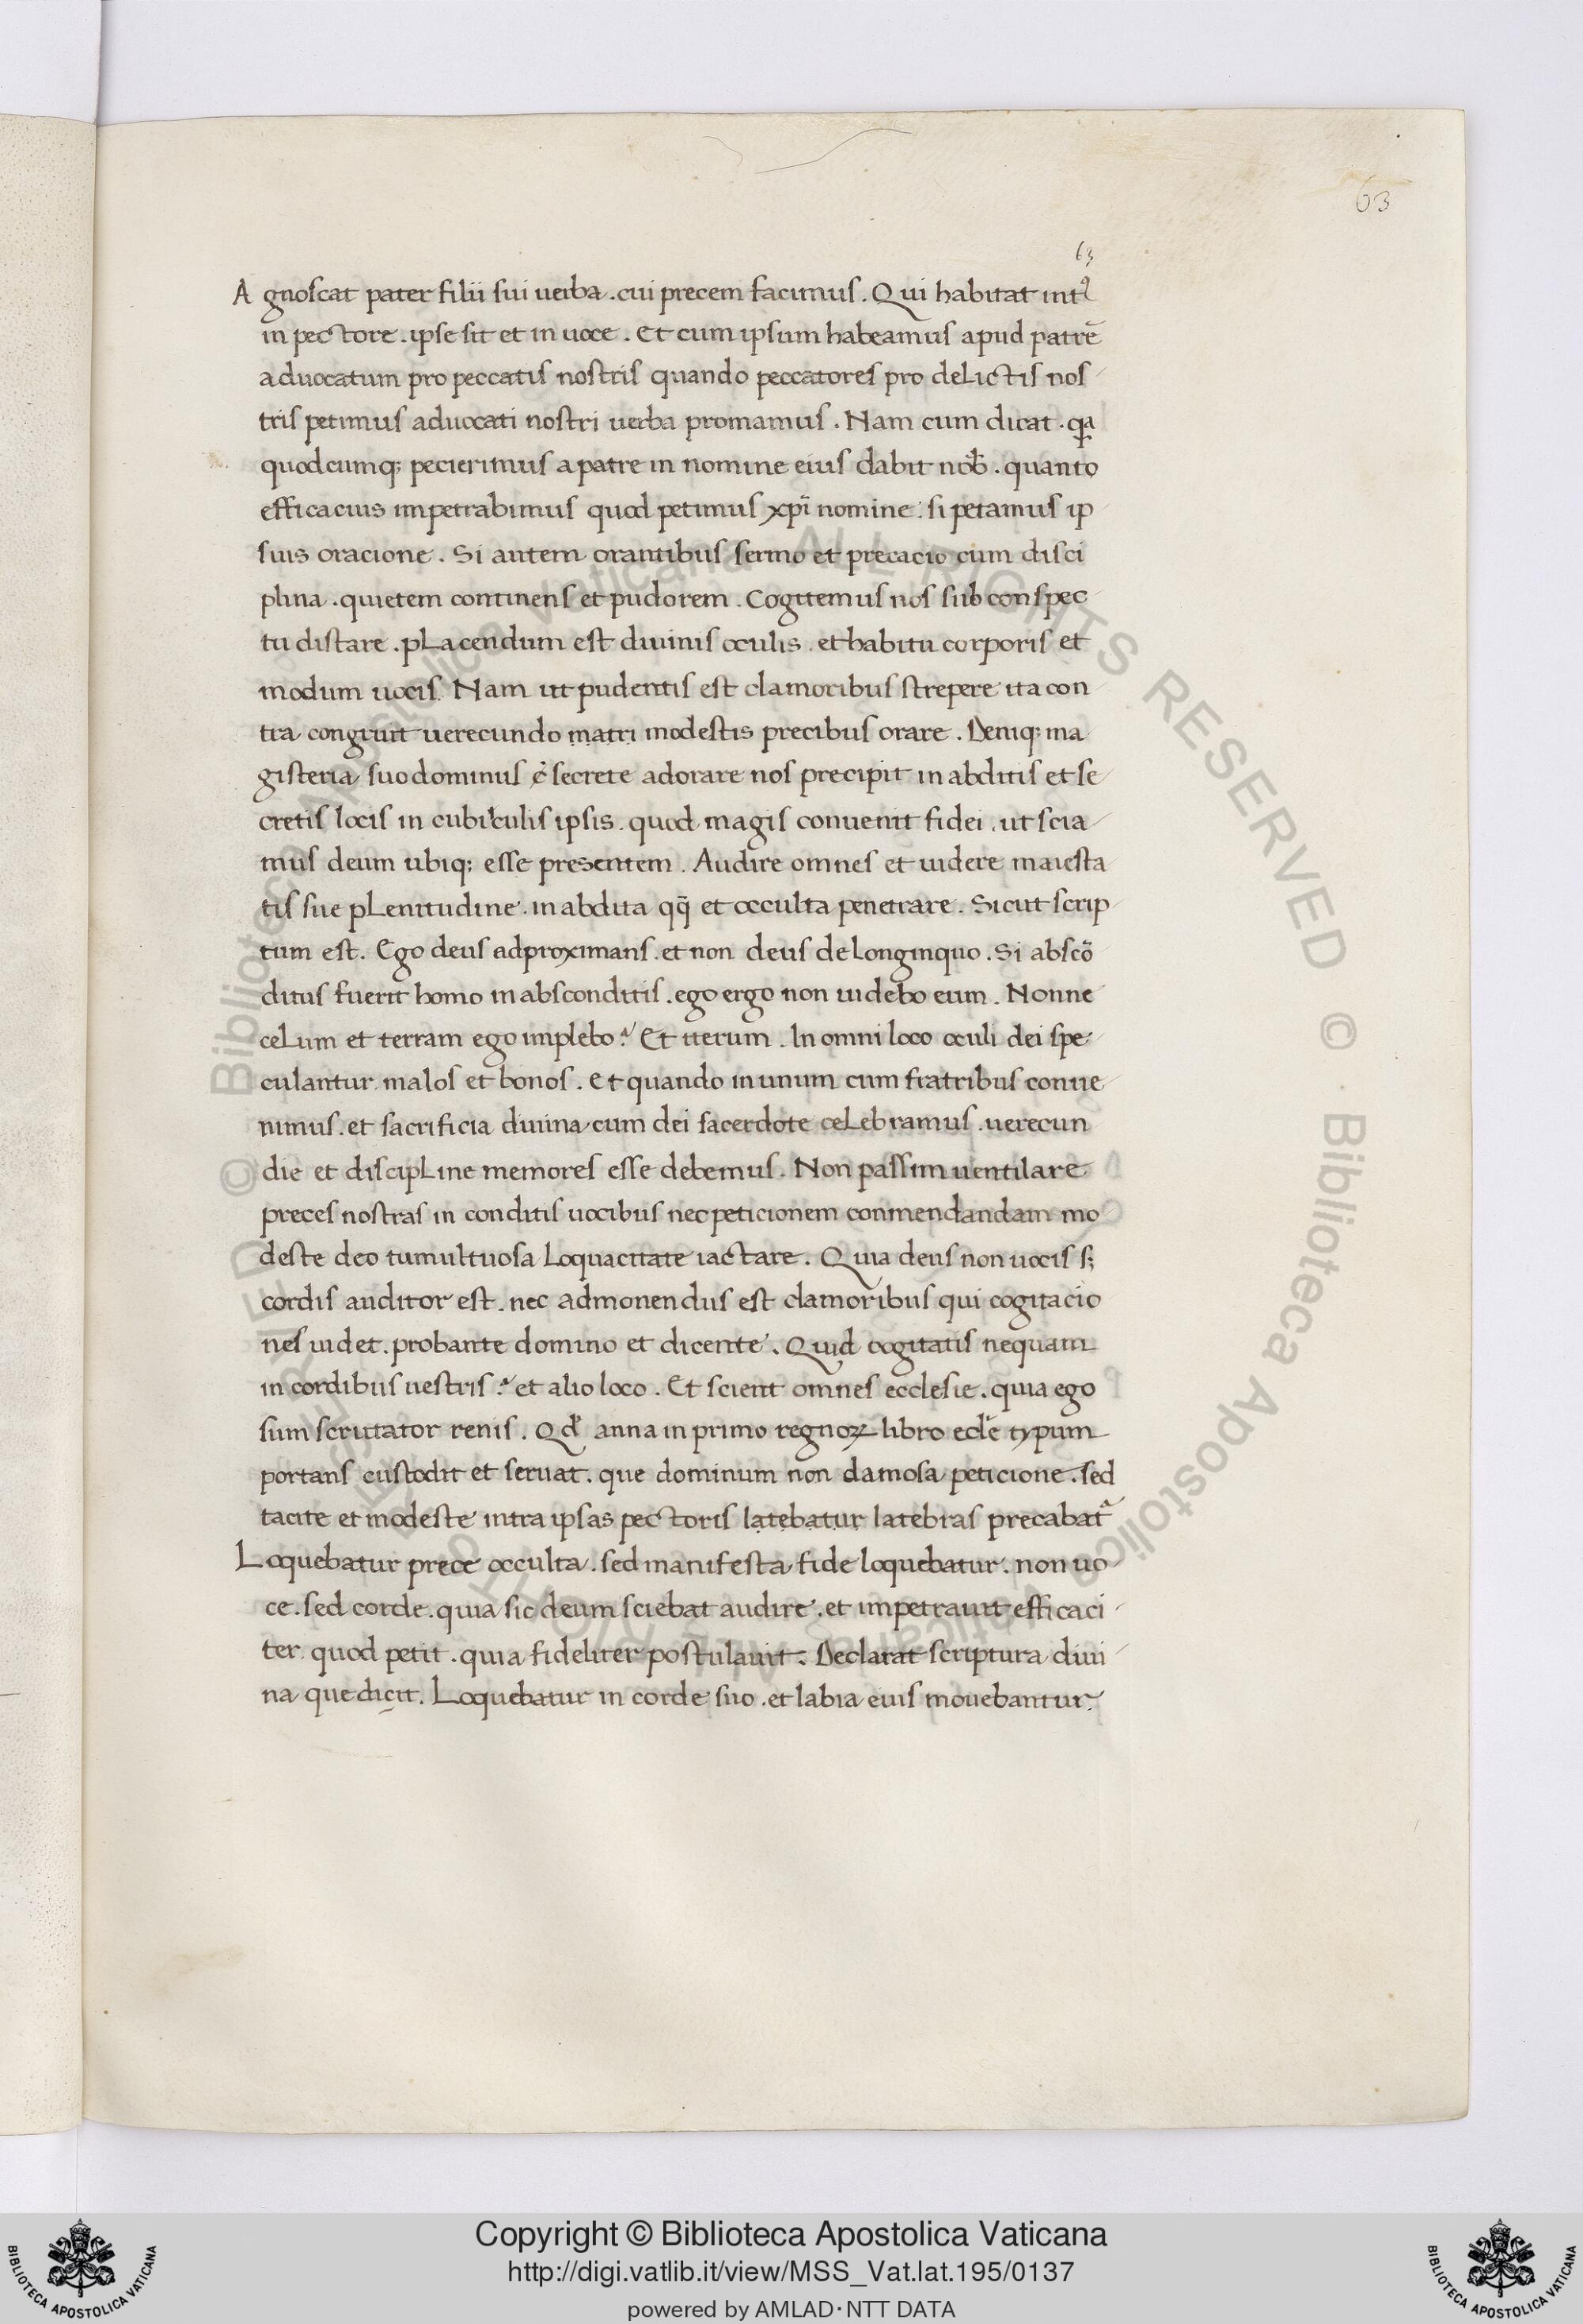 63
63
Agnoscat pater filii sui uerba . cui precem facimus . Qui habitat int᷒
in pectore . ipse sit et in uoce . Et cum ipsum habeamus apud patrē
aduocatum pro peccatis nostris quando peccatores pro delictis nos
tris petimus aduocati nostri uerba promamus . Nam cum dicat . qa
quodcumq; pecierimus a patre in nomine eius dabit nob̄ . quanto
efficacius impetrabimus quod petimus xp̄i nomine . si petamus ip
suis oracione . Si autem orantibus sermo et precacio cum disci
plina . quietem continens et pudorem . Cogitemus nos sub conspec
tu distare . placendum est diuinis oculis . et habitu corporis et
modum uocis . Nam ut pudentis est clamoribus strepere ita con
tra congruit uerecundo matri modestis precibus orare . Deniq; ma
gisteria suo dominus ē secrete adorare nos precipit in abditis et se
cretis locis in cubiculis ipsis . quod magis conuenit fidei . ut scia
mus deum ubiq; esse presentem . Audire omnes et uidere maiesta
tis sue plenitudine . in abdita qq̄ et occulta penetrare . Sicut scrip
tum est . Ego deus adproximans . et non deus de longinquo . Si abscō
ditus fuerit homo in absconditis . ego ergo non uidebo eum . Nonne
celum et terram ego implebo ? Et iterum . In omni loco oculi dei spe
culantur malos et bonos . Et quando in unum cum fratribus conue
nimus . et sacrificia diuina cum dei sacerdote celebramus . uerecun
die et discipline memores esse debemus . Non passim uentilare
preces nostras in conditis uocibus nec peticionem conmendandam mo
deste deo tumultuosa loquacitate iactare . Quia deus non uocis s;
cordis auditor est . nec admonendus est clamoribus qui cogitacio
nes uidet . probante domino et dicente . Quid cogitatis nequam
in cordibus uestris ? et alio loco . Et scient omnes ecclesie . quia ego
sum scrutator renis . Qd̄ anna in primo regnoꝝ libro eccl̄e typum
portans custodit et seruat . que dominum non clamosa peticione . sed
tacite et modeste intra ipsas pectoris latebatur latebras precabat᷒
Loquebatur prece occulta . sed manifesta fide loquebatur . non uo
ce . sed corde . quia sic deum sciebat audire . et impetrauit efficaci
ter quod petit . quia fideliter postulauit . Declarat scriptura diui
na que dicit . Loquebatur in corde suo . et labia eius mouebantur
© Biblioteca Apostolica Vaticana ALL RIGHTS RESERVED © Biblioteca Apostolica Vaticana ALL RIGHTS RESERVED
Copyright © Biblioteca Apostolica Vaticana
http://digi.vatlib.it/view/MSS_Vat.lat.195/0137
powered by AMLAD·NTT DATA
BIBLIOTECA APOSTOLICA VATICANA
BIBLIOTECA APOSTOLICA VATICANA